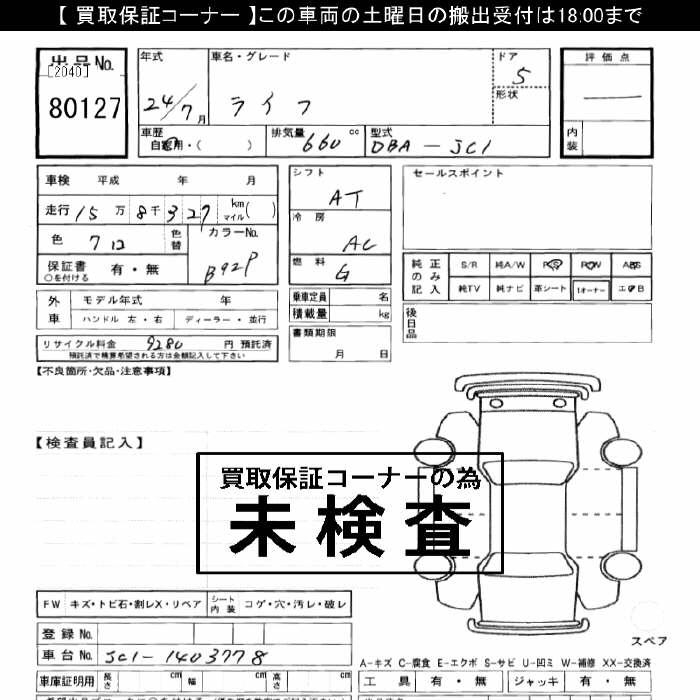 【 買取保証コーナー 】この車両の土曜日の搬出受付は18:00まで
出品No.
[2040]
80127
年式
24/7月
車名・グレード
ライフ
ドア
5
形状
評価点
内装
車歴
自家用・( )
排気量 660 cc
型式
DBA-JC1
車検 平成 年 月
走行 15万8千327 km マイル( )
色 クロ
色替
カラーNo.
B92P
保証書 有・無
○を付ける
シフト
AT
冷房
AC
燃料
G
セールスポイント
純正のみ記入
S/R 純A/W P/S P/W ABS
純TV 純ナビ 革シート 1オーナー エアB
外車
モデル年式 年
ハンドル 左・右 ディーラー・並行
乗車定員 名
積載量 kg
後日品
リサイクル料金 9280 円 預託済
預託済で精算希望される方は金額記入して下さい
書類期限
月 日
【不良箇所・欠品・注意事項】
【検査員記入】
買取保証コーナーの為
未検査
FW キズ・トビ石・割レX・リペア
シート内装 コゲ・穴・汚レ・破レ
登録No.
車台No. JC1-1403778
スペア
A-キズ C-腐食 E-エクボ S-サビ U-凹ミ W-補修 XX-交換済
車庫証明用 長さ cm 幅 cm 高さ cm
工具 有・無 ジャッキ 有・無